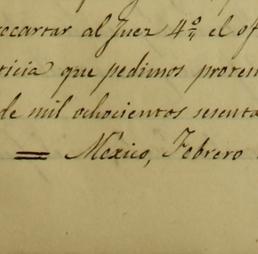 rocartar al Juez 4º el of
ticia que pedimos proten
de mil ochocientos sesenta
= México, Febrero